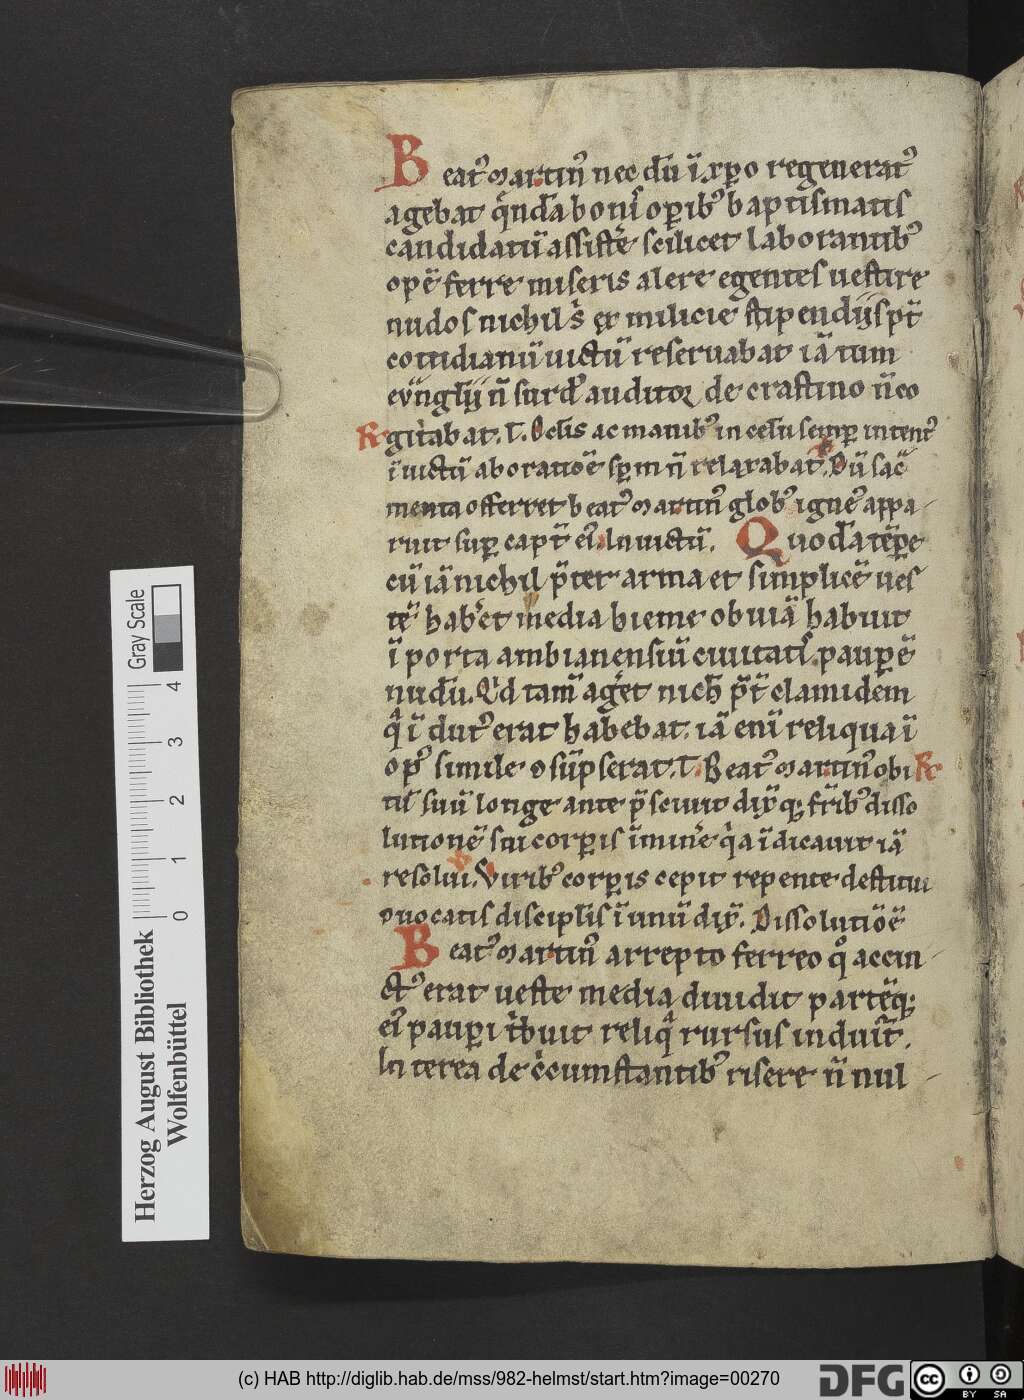 Beat᷒ martin᷒ nec dū ī xp̄o regenerat᷒
agebat q̇ndā boni᷒ op̲ib᷒ baptismatis
candidatū assistē scilicet laborantib᷒
opē ferre miseris alere egentes uestire
nudos nichil s̓ ex milicie stipendijs pt̄
cottidianū uictū reseruabat iā tum
ev̄ngl̄ij n̄ surd᷒ auditor de crastino n̄ co
R gitabat. V. Oclis ac manib᷒ in celū semp̲ intent᷒
īuictū ab oratiōe sp̄m n̄ relaxabat. Dū sac̄
menta offerret beat᷒ martin᷒ glob᷒ igne᷒ appa-
ruit sup̲ capt̄ ei᷒. Inuictū. Quodā tēpe
cū iā nichil p̄ter arma et simplicē ues
tē hab̓et media hieme obuiā habuit
ī porta ambianensiū ciuitatis paup̲ē
nudū. Qͥd tam̄ aget nich̄ p̄t̄ clamidem
qͣ īdut᷒ erat habebat. iā enī reliqua ī
op᷒ simile 9sūpserat. V. Beat᷒ martin᷒ obi R
tū suū longe ante p̄sciuit dix̄q; fr̄ib᷒ disso
lutionē sui corp̲is īminēe qͥa īdicauit iā
resolui. Virib᷒ corp̲is cepit repente destitui
9uocatis discipl̄is ī unū dix̄. Dissolutiōē
Beat᷒ martin᷒ arrepto ferro qͦ accin-
ct᷒ erat ueste media diuidit partēq;
ei᷒ paup̲i tͥbuit reliqͣ rursus induit̄.
Interea de cͥcumstantib᷒ risere n̄nul-
Herzog August Bibliothek
Wolfenbüttel
0 1 2 3 4
Gray Scale
(c) HAB http://diglib.hab.de/mss/982-helmst/start.htm?image=00270
DFG
cc BY SA